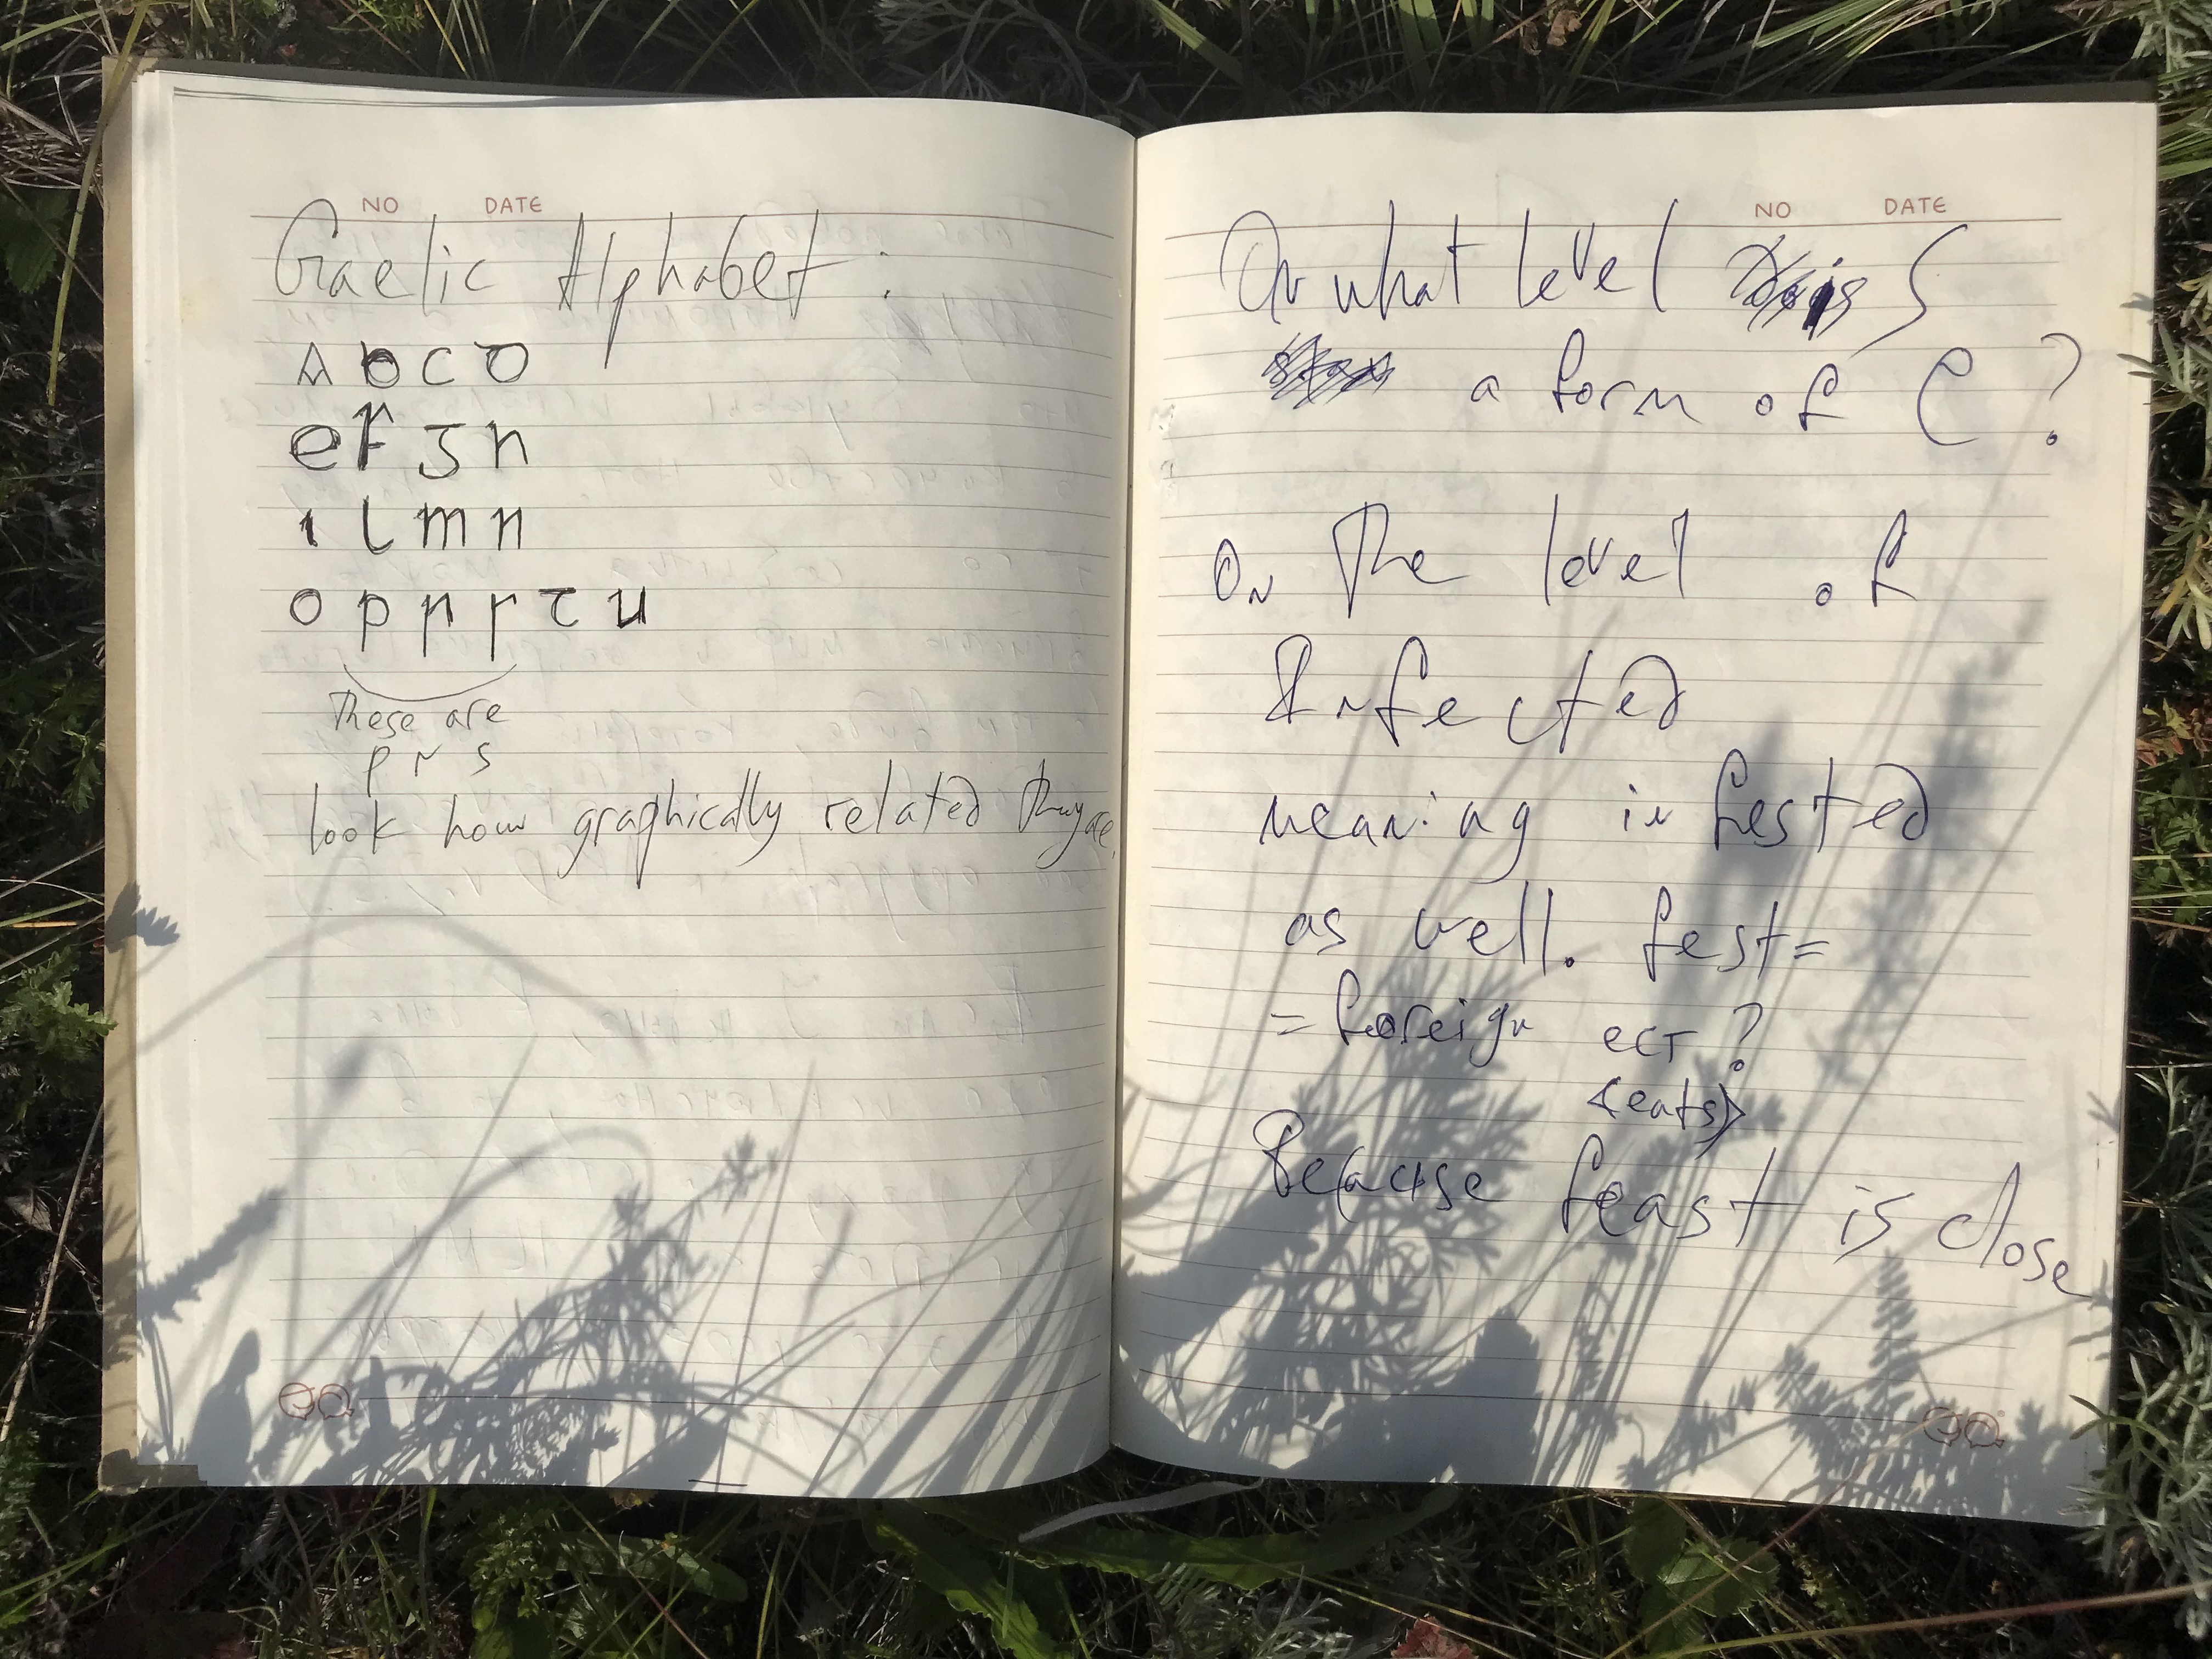 NO DATE
Gaelic Alphabet.
A b c d
e f g h
ı l m n
o p ɲ r τ u
these are
p r s
look how graphically related they are.
NO DATE
On what level is S
a form of C?
On the level of
infected
meaning in fested
as well. fest =
= foreign ест?
<eats>
Because feast is close